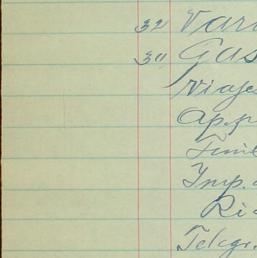 32 Var
30 Gas
Viaje
Ap. p
Imp.
Ri
Telegr.